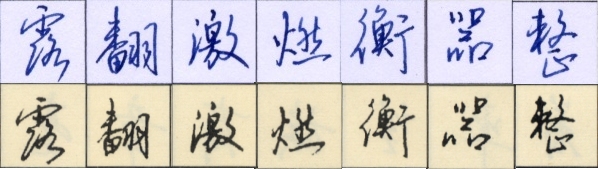 露翻激燃衡器整
露翻激燃衡器整